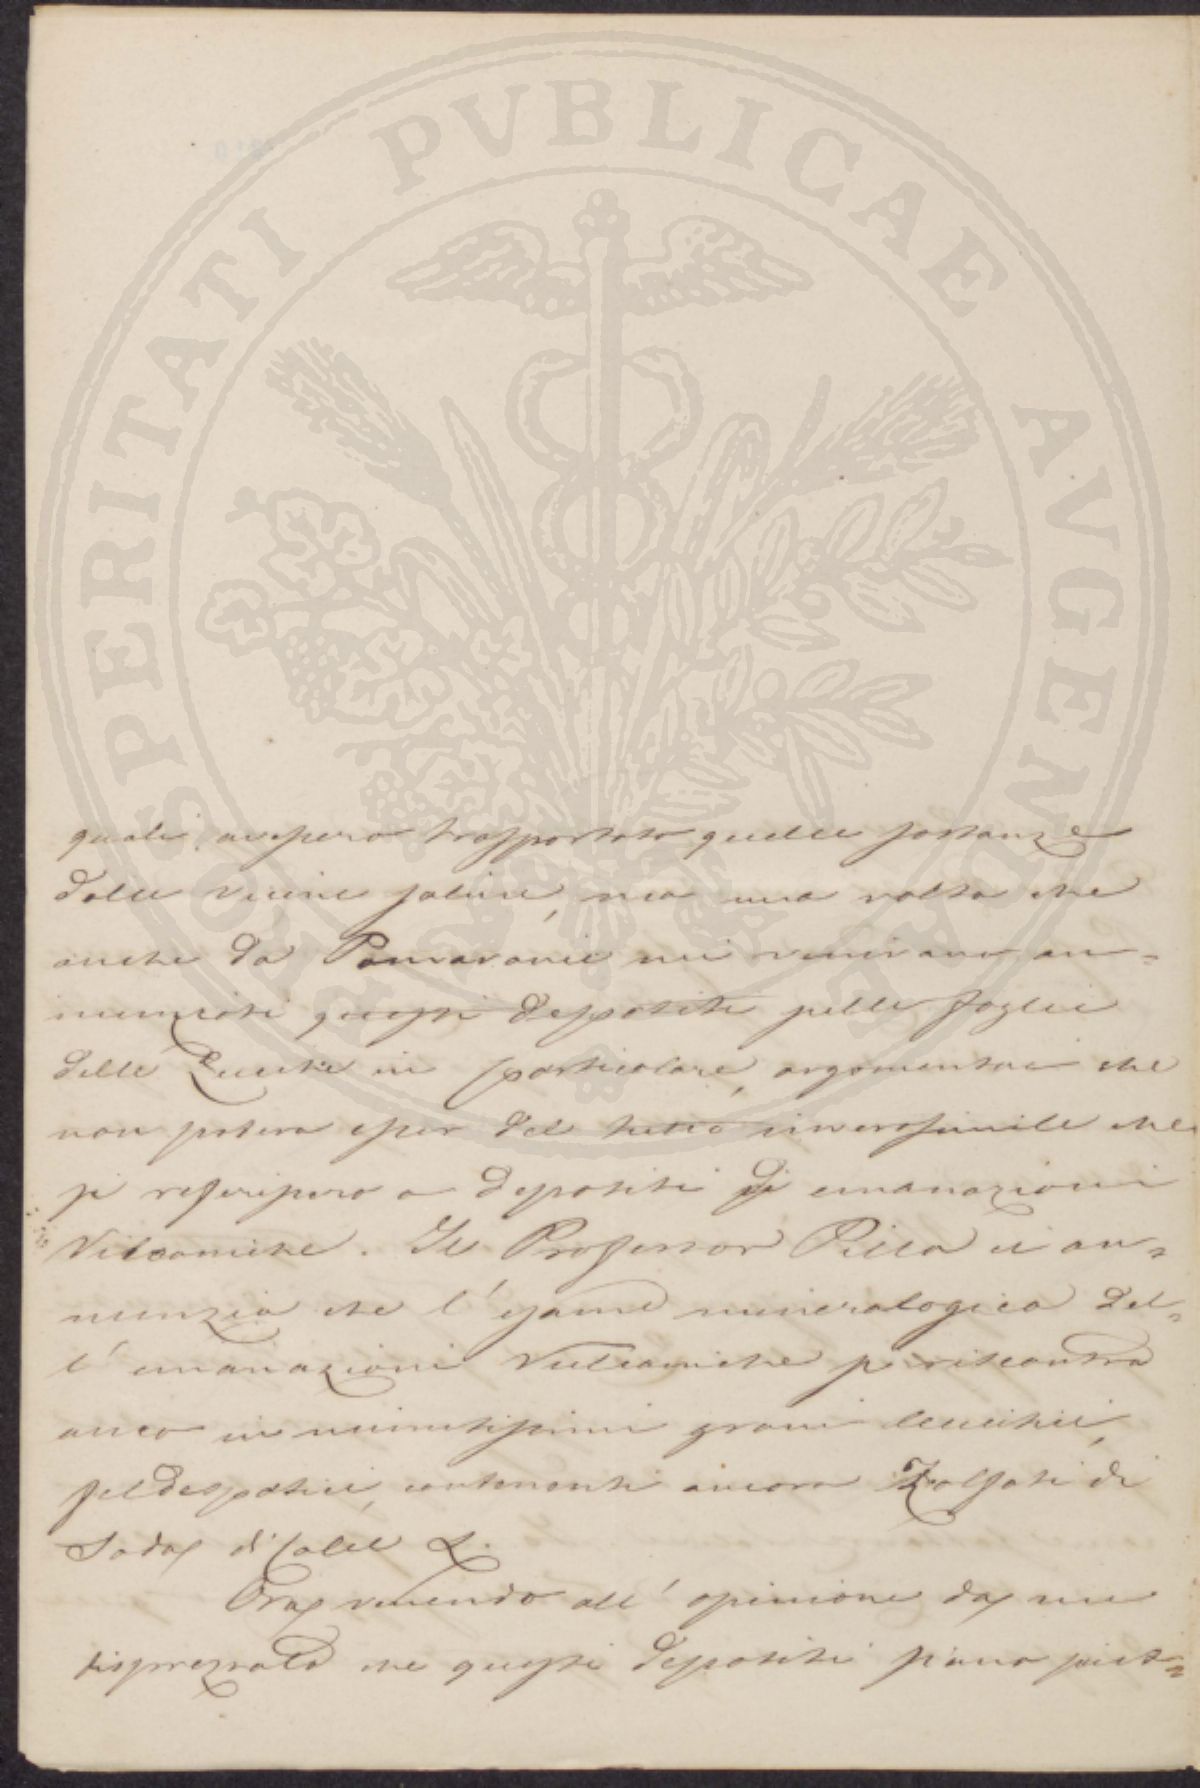 PROSPERITATI PVBLICAE AVGENDAE
quali avessero trasportato quelle sostanze
dalle vicine saline, ma una volta che
anche da Pomarance mi venivano an=
nunziati questi depositi sulle foglie
delle in particolare, argomentai che
non poteva esser del tutto inverosimile che
si referissero a depositi di emanazioni
Vulcaniche. Il Professor Pilla ci an=
nunzia che l'esame mineralogico del=
l'emanazioni Vulcaniche si riscontra
anco in minutissimi grani leucitici,
feldespatici, contenenti ancora Zolfati di
Soda, di Calce &.
Ora, venendo all'opinione da, me
che questi depositi siano piut=